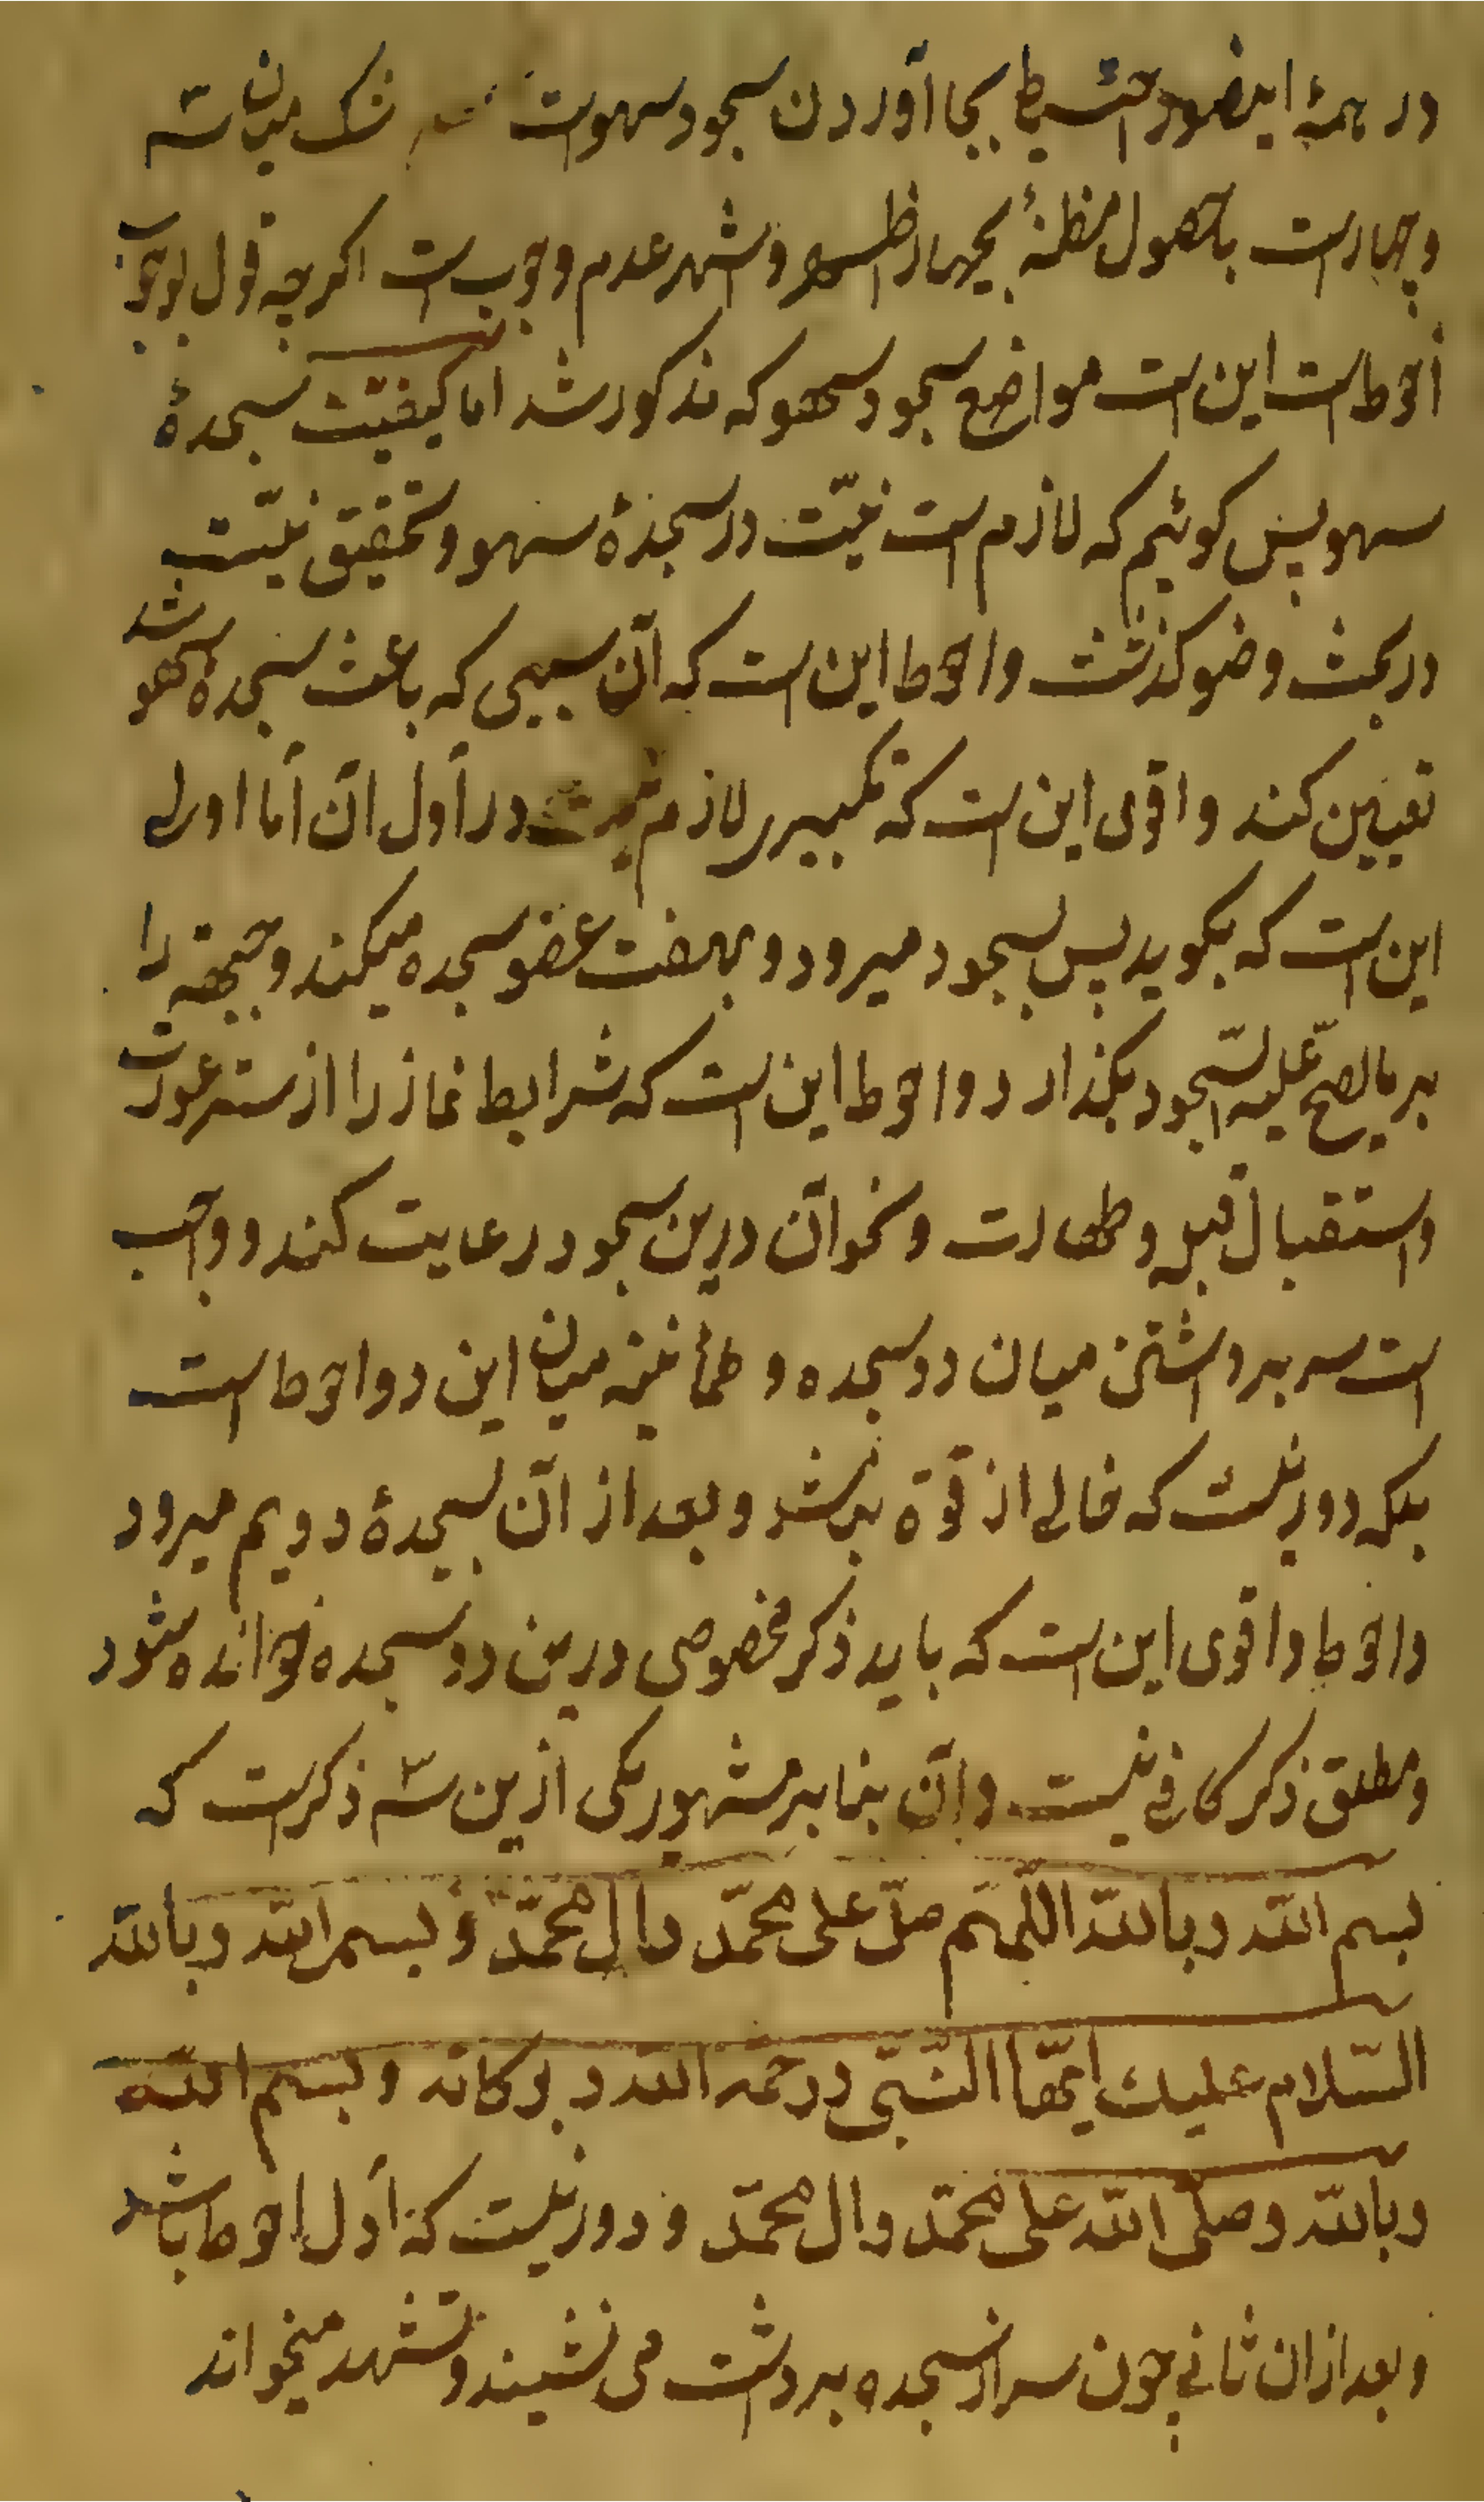 در همهٔ اینصور احتیاط بجا آوردن سجود سهوست شک میان سه
و چهارست با حصول مظنهٔ بچهار اظهر و اشهر عدم وجوب ست اگر چه قول بوجوب
أحوط است این ست مواضع سجود سهو که مذکور شد اما کیفیّت سجدهٔ
سهو پس گوئیم که لازم است نیّت در سجدهٔ سهو و تحقیق نیّت
در بحث وضو گذشت و احوط این است که آن سببی که باعث سجدهٔ سهو شد
تعیین کند و اقوی این ست که تکبیر لازم نیست در أول آن أما اولی
این است که بگوید پس بسجود میرود و بهفت عضو سجده میکند و جبهه را
بر ما یصح علیه السّجود بگذارد و احوط این ست که شرایط نماز را از ستر عورت
و استقبال قبله و طهارت و نحو آن درین سجود رعایت کند و واجب
است سر برداشتن میان دو سجده و طمأنینه میان این دو احوط است
بلکه دور نیست که خالی از قوّة نباشد و بعد از آن بسجدهٔ دویم میرود
و احوط و اقوی این ست که باید ذکر مخصوصی درین دو سجده خوانده شود
و مطلق ذکر کافی نیست و آن بنا بر مشهور یکی ازین سه ذکرست که
بسم الله و بالله اللّهمّ صلّ علی محمّد وال محمّد و بسم الله و بالله
السّلام علیك ایّها النّبی و رحمة الله و برکاته و بسم الله
و بالله و صلّی الله علی محمّد وال محمّد و دور نیست که أول احوط باشد
و بعد از ان ثانی چون سر از سجده برداشت می نشیند و تشهد میخواند